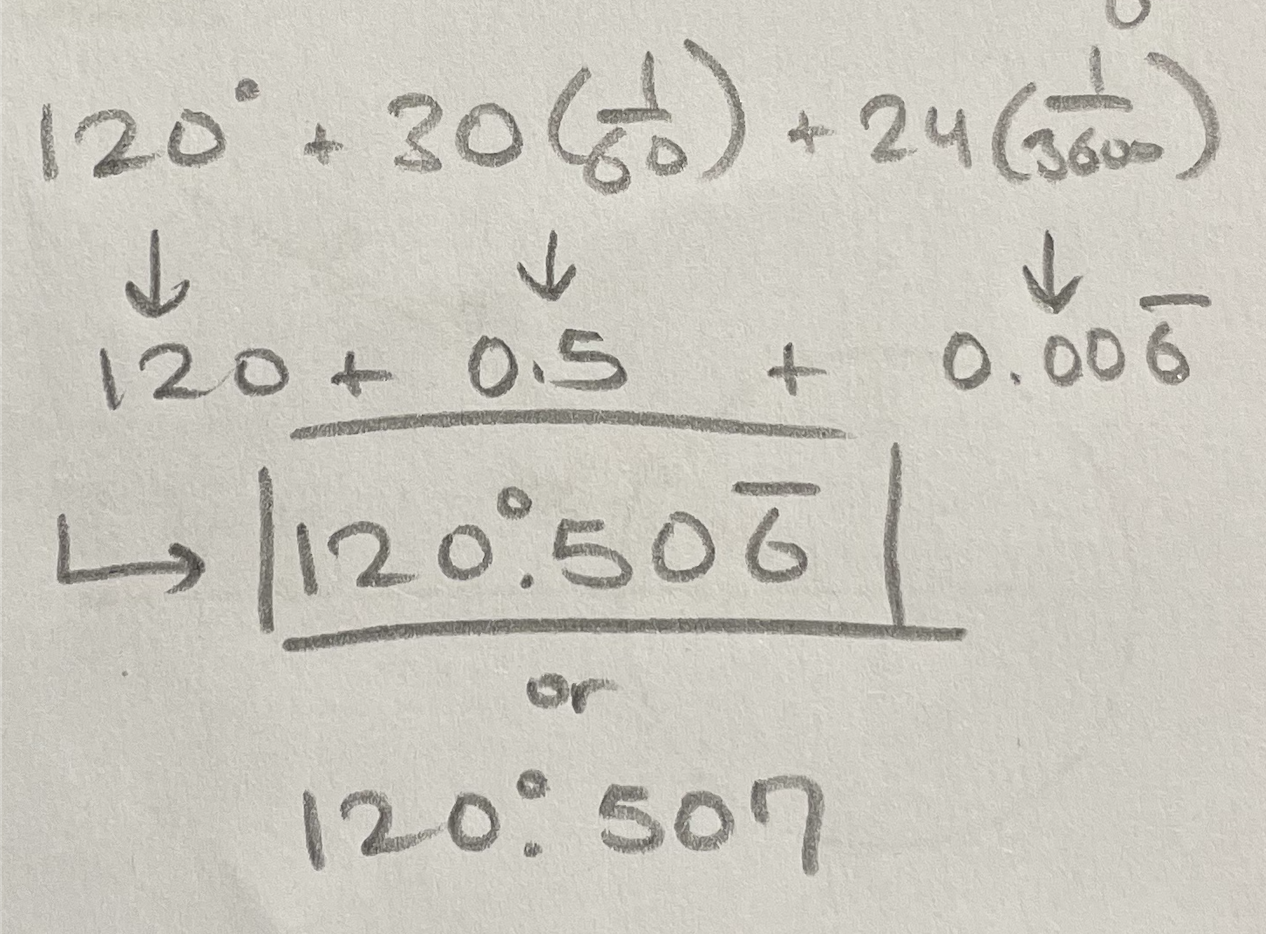 120° + 30(1/60) + 24(1/3600)
↓ ↓ ↓
120 + 0.5 + 0.006̅
↳ 120°.506̅
or
120°.507